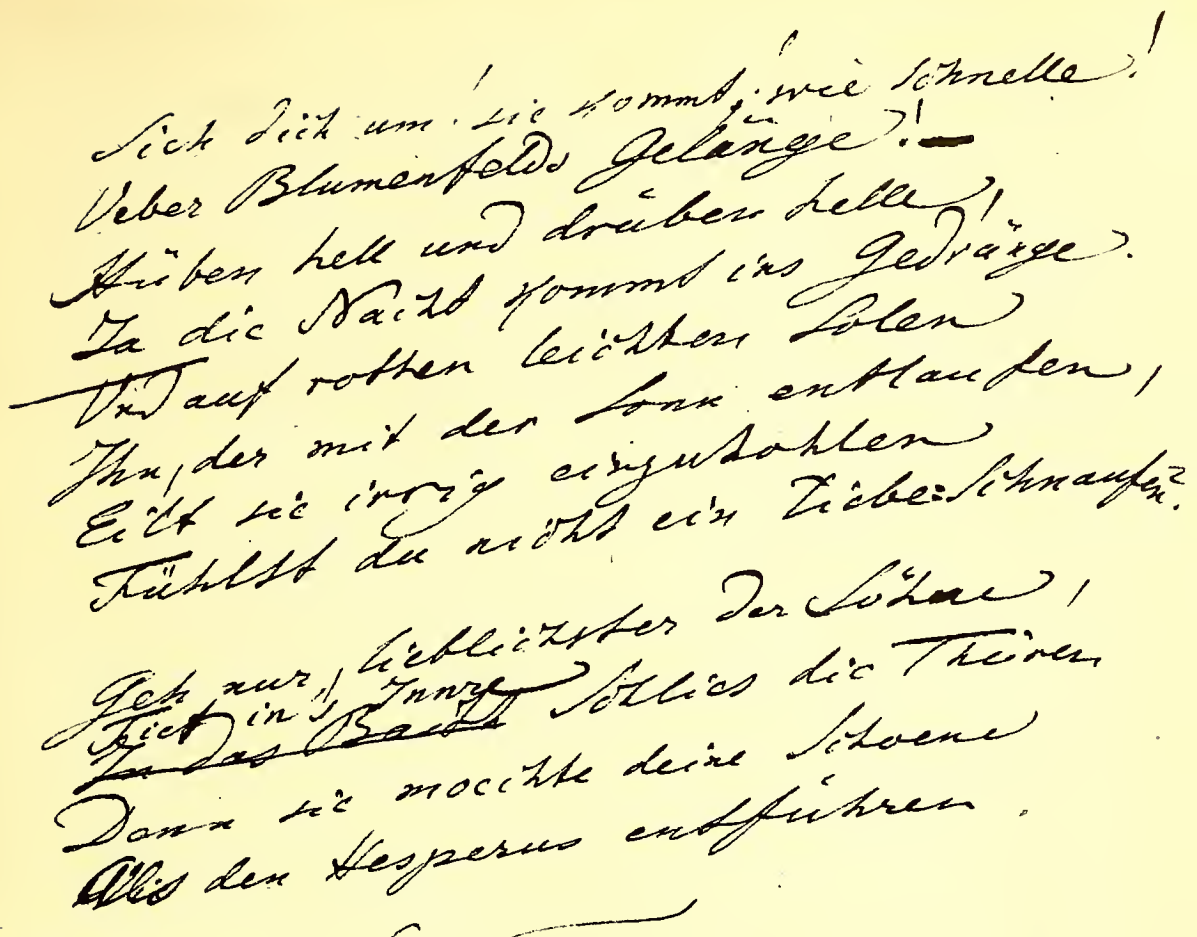 Sieh dich um! sie kommt! wie schnelle!
Ueber Blumenfelds Gelänge! —
Hüben hell und drüben helle,
Ja die Nacht kommt ins Gedränge.
Und auf rothen leichten Solen
Ihn, der mit der Sonn entlaufen,
Eilt sie irrig einzuhohlen
Fühlst du nicht ein Liebe=Schnaufen?
Geh nur, lieblichster der Söhne,
Tief in's Innre
In das Bachs Schlies die Thüren
Denn sie moechte deine Schoene
Als den Hesperus entführen.